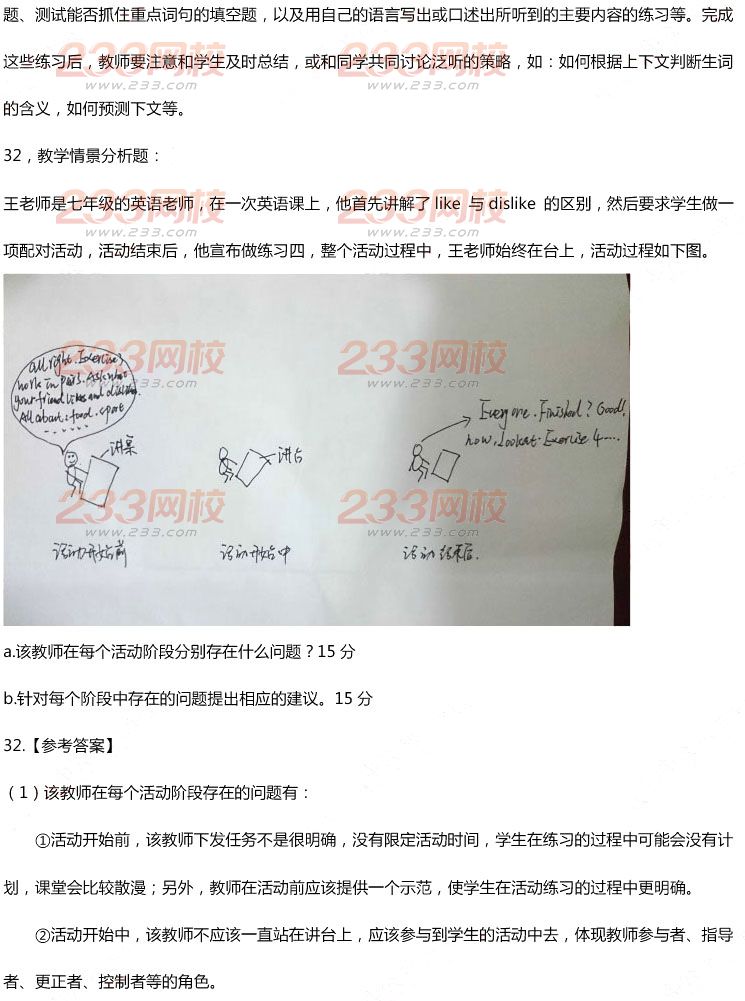 题、测试能否抓住重点词句的填空题，以及用自己的语言写出或口述出所听到的主要内容的练习等。完成
这些练习后，教师要注意和学生及时总结，或和同学共同讨论泛听的策略，如：如何根据上下文判断生词
的含义，如何预测下文等。
32，教学情景分析题：
王老师是七年级的英语老师，在一次英语课上，他首先讲解了 like 与 dislike 的区别，然后要求学生做一
项配对活动，活动结束后，他宣布做练习四，整个活动过程中，王老师始终在台上，活动过程如下图。
All right. Exercise 3
work in pairs. Ask what
your friend likes and dislikes.
All about: food. sport
讲桌
讲台
Everyone. Finished? Good!
now. look at Exercise 4....
活动开始前
活动开始中
活动结束后.
a.该教师在每个活动阶段分别存在什么问题？15 分
b.针对每个阶段中存在的问题提出相应的建议。15 分
32.【参考答案】
（1）该教师在每个活动阶段存在的问题有：
①活动开始前，该教师下发任务不是很明确，没有限定活动时间，学生在练习的过程中可能会没有计
划，课堂会比较散漫；另外，教师在活动前应该提供一个示范，使学生在活动练习的过程中更明确。
②活动开始中，该教师不应该一直站在讲台上，应该参与到学生的活动中去，体现教师参与者、指导
者、更正者、控制者等的角色。
233网校
www.233.com
233网校
www.233.com
233网校
www.233.com
233网校
www.233.com
233网校
www.233.com
233网校
www.233.com
233网校
www.233.com
233网校
www.233.com